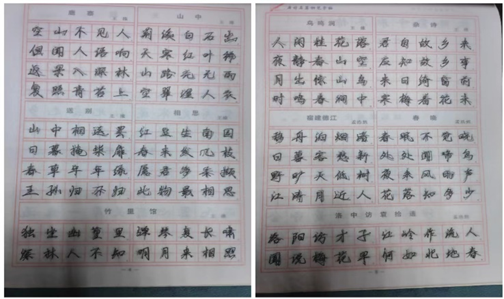 鹿柴 山中
王维 王维
空山不见人 荆溪白石出
但闻人语响 天寒红叶稀
返景入深林 山路元无雨
复照青苔上 空翠湿人衣
送别 相思
王维 王维
山中相送罢 红豆生南国
日暮掩柴扉 春来发几枝
春草年年绿 愿君多采撷
王孙归不归 此物最相思
竹里馆
王维
独坐幽篁里 弹琴复长啸
深林人不知 明月来相照
鸟鸣涧 杂诗
人闲桂花落 君自故乡来
夜静春山空 应知故乡事
月出惊山鸟 来日绮窗前
时鸣春涧中 寒梅着花未
宿建德江 春晓
孟浩然 孟浩然
移舟泊烟渚 春眠不觉晓
日暮客愁新 处处闻啼鸟
野旷天低树 夜来风雨声
江清月近人 花落知多少
洛中访袁拾遗
孟浩然
洛阳访才子 江岭作流人
闻说梅花早 何如北地春